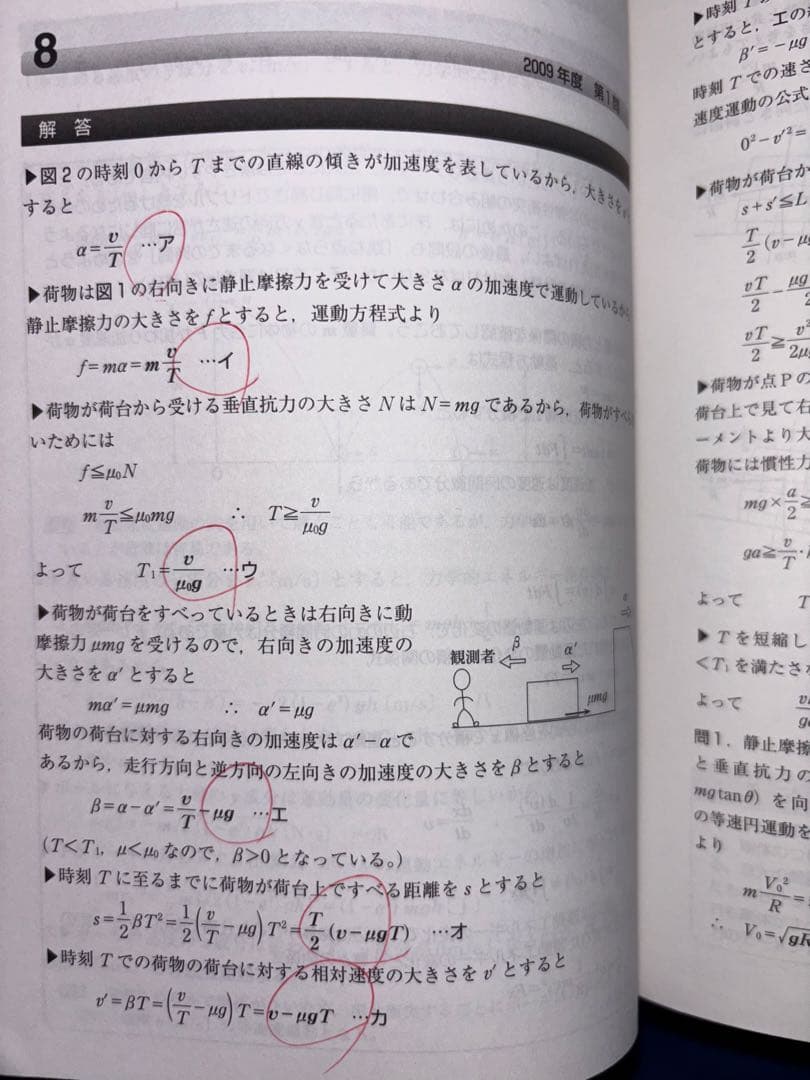 8
2009年度 第1問
解 答
▶図2の時刻0からTまでの直線の傾きが加速度を表しているから，大きさを
すると
α=v/T …ア
▶荷物は図1の右向きに静止摩擦力を受けて大きさαの加速度で運動しているから
静止摩擦力の大きさをfとすると，運動方程式より
f=mα=m v/T …イ
▶荷物が荷台から受ける垂直抗力の大きさNはN=mgであるから，荷物がすべ
いためには
f≦μ₀N
m v/T≦μ₀mg ∴ T≧v/μ₀g
よって T₁=v/μ₀g …ウ
▶荷物が荷台をすべっているときは右向きに動
摩擦力μmgを受けるので，右向きの加速度の
大きさをα′とすると
mα′=μmg ∴ α′=μg
観測者 β α′ μmg
荷物の荷台に対する右向きの加速度はα′−αで
あるから，走行方向と逆方向の左向きの加速度の大きさをβとすると
β=α−α′=v/T−μg …エ
(T<T₁，μ<μ₀なので，β>0となっている。)
▶時刻Tに至るまでに荷物が荷台上ですべる距離をsとすると
s=1/2βT²=1/2(v/T−μg)T²=T/2(v−μgT) …オ
▶時刻Tでの荷物の荷台に対する相対速度の大きさをv′とすると
v′=βT=(v/T−μg)T=v−μgT …カ
▶時刻
とすると，エの
β′=−μg
時刻Tでの速さ
速度運動の公式
0²−v′²=
▶荷物が荷台か
s+s′≦L
T/2(v−μ
vT/2−μg
vT/2≧v²/2μ
▶荷物が点Pの
荷台上で見て右
ーメントより大
荷物には慣性力
mg×a/2≧
ga≧v/T・
よって T
▶Tを短縮し
<T₁を満たさ
よって
問1．静止摩擦
と垂直抗力の
mgtanθ)を向
の等速円運動を
より
m V₀²/R=
∴ V₀=√gR